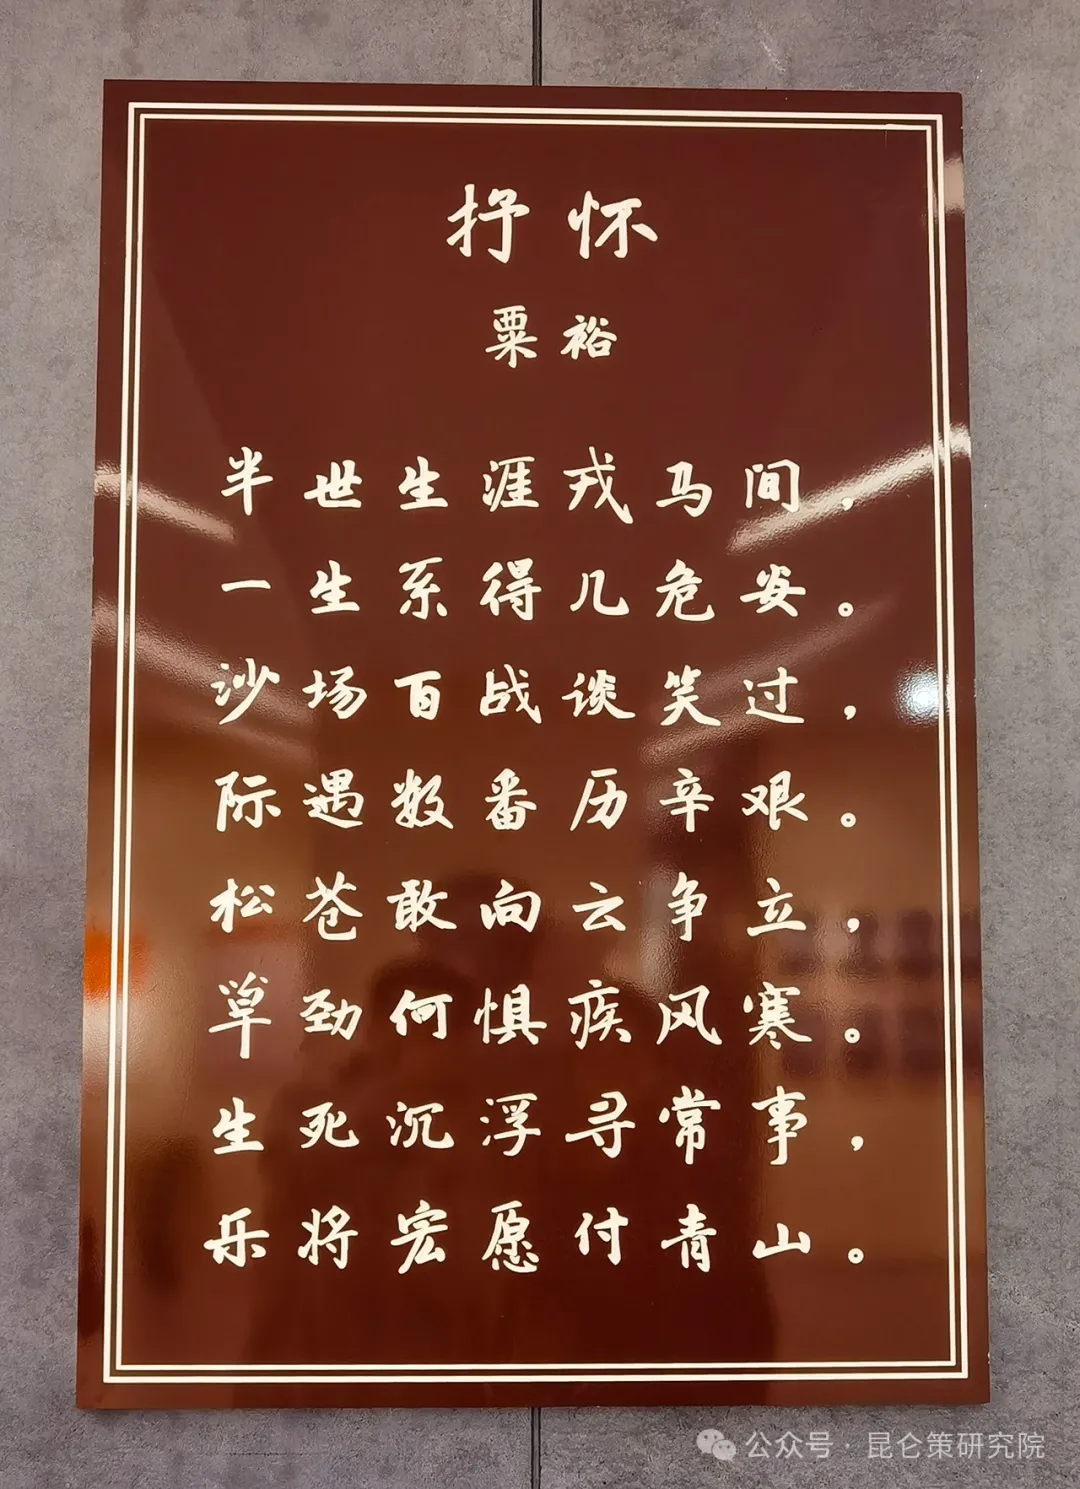 抒怀
粟裕
半世生涯戎马间，
一生系得几危安。
沙场百战谈笑过，
际遇数番历辛艰。
松苍敢向云争立，
草劲何惧疾风寒。
生死沉浮寻常事，
乐将宏愿付青山。
公众号·昆仑策研究院